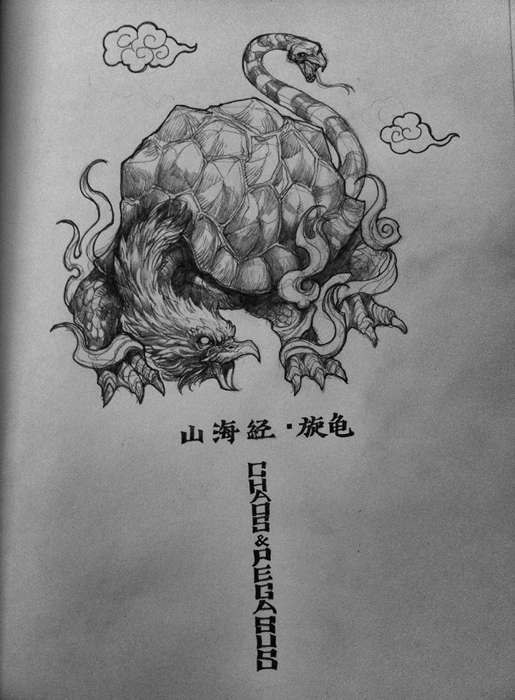 山海经·旋龟
CHAOS&PEGASUS